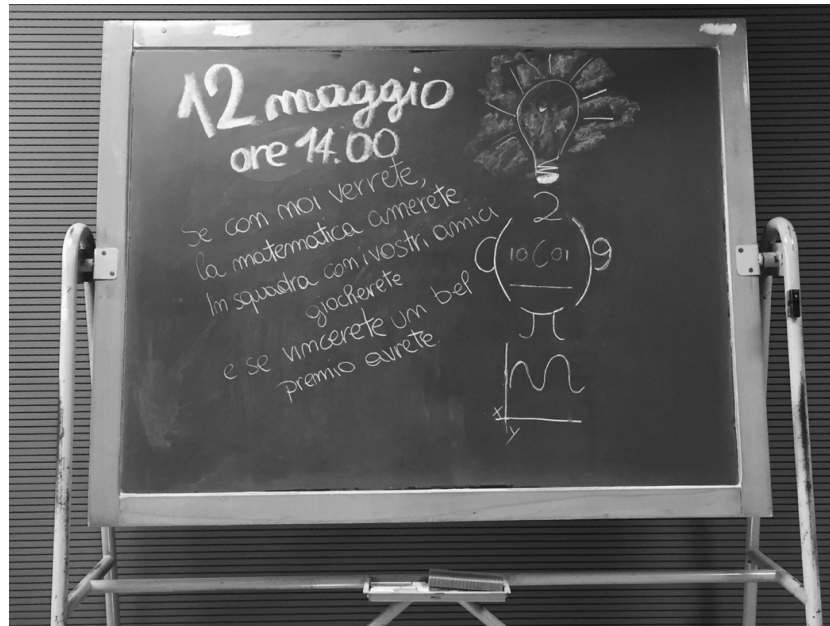 12 maggio
ore 14.00
Se con noi verrete,
la matematica amerete
In squadra con i vostri amici
giocherete
e se vincerete un bel
premio avrete.
2
10 01
9
π
x
y